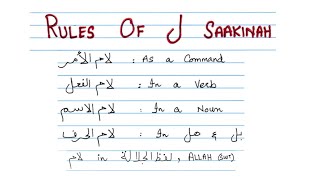 RULES OF ل SAAKINAH
لام الأمر : As a Command
لام الفعل : In a Verb
لام الاسم : In a Noun
لام الحرف : In هل & بل
لام in لفظ الجلالة, ALLAH (SWT)